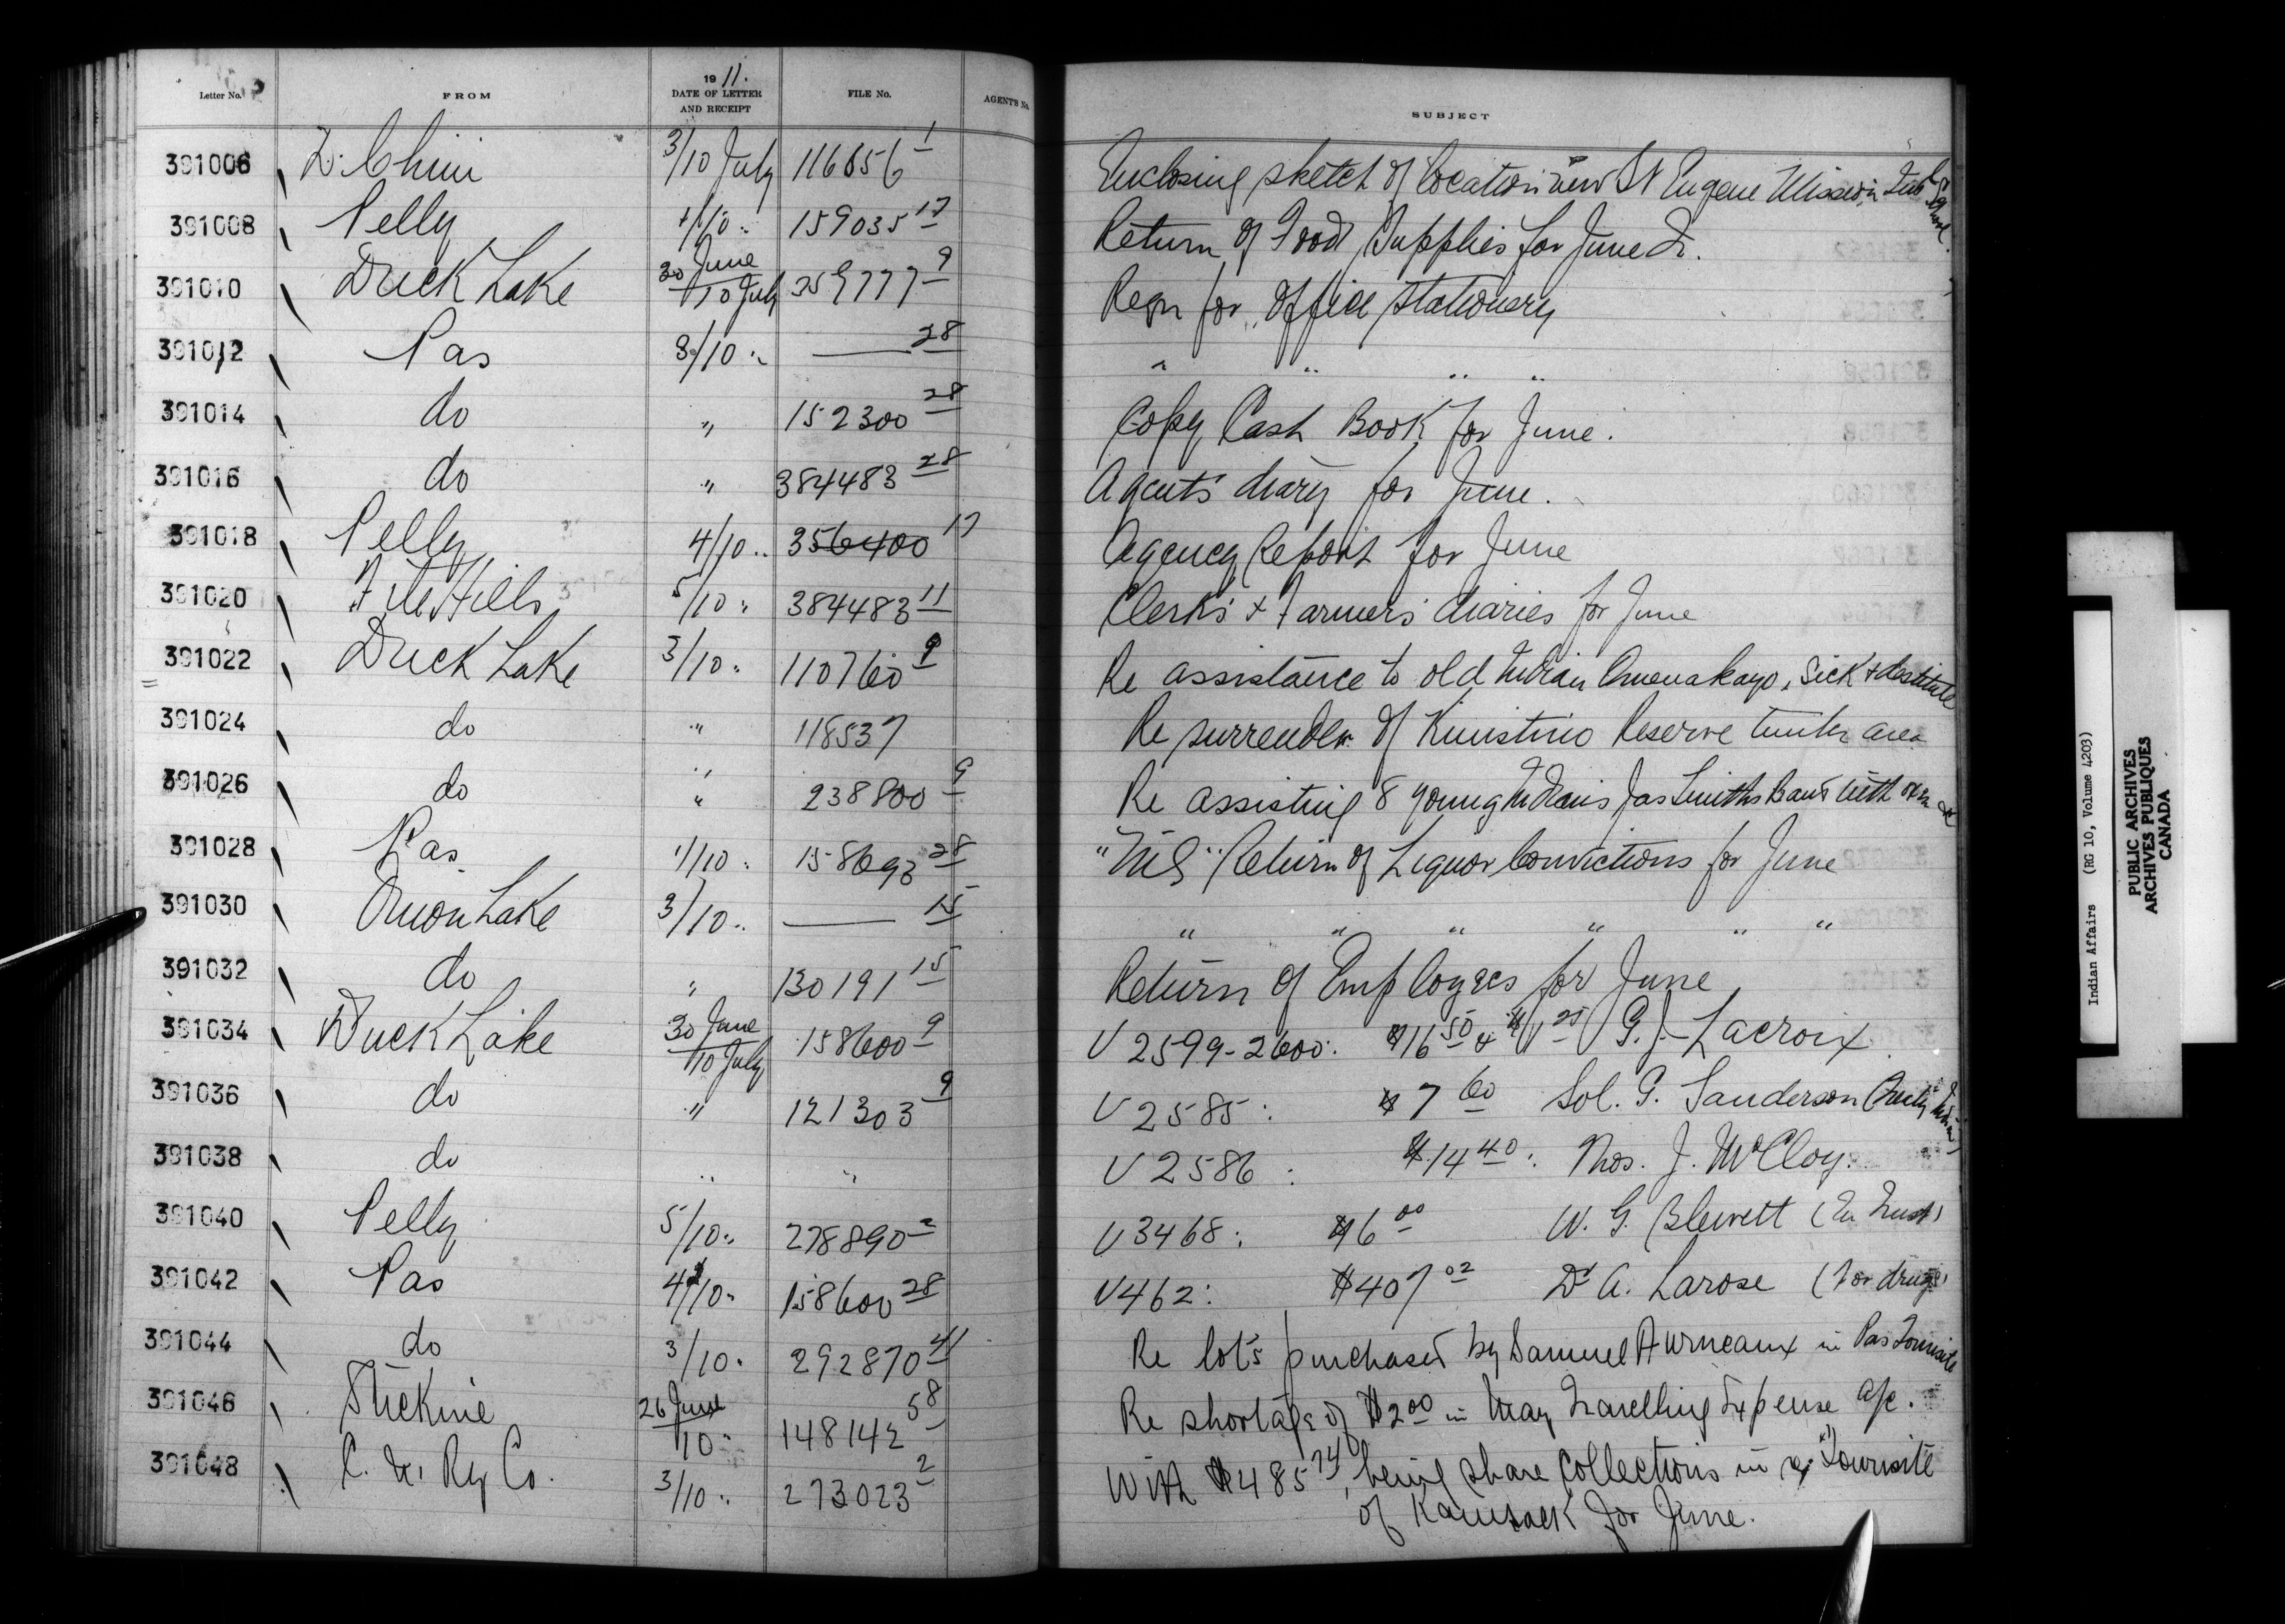 Letter No. FROM 1911. DATE OF LETTER AND RECEIPT FILE No. AGENT'S No. SUBJECT
391006 3/10 July 116656 1 Enclosing sketch of location new St Eugene Mission Ind. School.
391008 Pelly 4/10 " 159035 17 Return of Food Supplies for June Qr.
391010 Duck Lake 30 June/10 July 259777 9 Reqn for Office Stationery
391012 Pas 8/10 " — 28 " " " "
391014 do " 152300 28 Copy Cash Book for June.
391016 do " 384483 28 Agents diary for June.
391018 Pelly 4/10 " 356400 17 Agency Report for June
391020 File Hills 5/10 " 384483 11 Clerk's + Farmers' diaries for June
391022 Duck Lake 3/10 " 110760 9 Re assistance to old Indian sick + destitute
391024 do " 118537 Re surrender of Kinistino Reserve timber area
391026 do " 238800 9 Re assisting 8 young Indians Jas Smiths Band with oxen &c
391028 Pas 1/10 " 158693 28 "Nil" Return of Liquor Convictions for June
391030 Onion Lake 3/10 " — 15 " " " " " "
391032 do " 130191 15 Return of Employees for June
391034 Duck Lake 30 June/10 July 158600 9 V 2599-2600: $16 50 & $1 25 G. J. Lacroix
391036 do " 121303 9 V 2585: $7 60 Sol. G. Sanderson
391038 do " " V 2586: $14 40: Thos. J. McCloy.
391040 Pelly 5/10 " 278890 2 V 3468: $6 00 W. G. Blewett (In Trust)
391042 Pas 4/10 " 158600 28 V 462: $407 02 Dr A. Larose (For drugs)
391044 do 3/10 " 292870 41 Re lots purchased by Samuel Furneaux in Pas Townsite
391046 Stickine 26 June/10 " 148142 58 Re shortage of $2 00 in May Travelling Expense a/c.
391048 C. N. Ry Co. 3/10 " 273023 2 With $485 74, being share collections in re Townsite
of Kamsack for June.
Indian Affairs (RG 10, Volume 4203)
PUBLIC ARCHIVES
ARCHIVES PUBLIQUES
CANADA